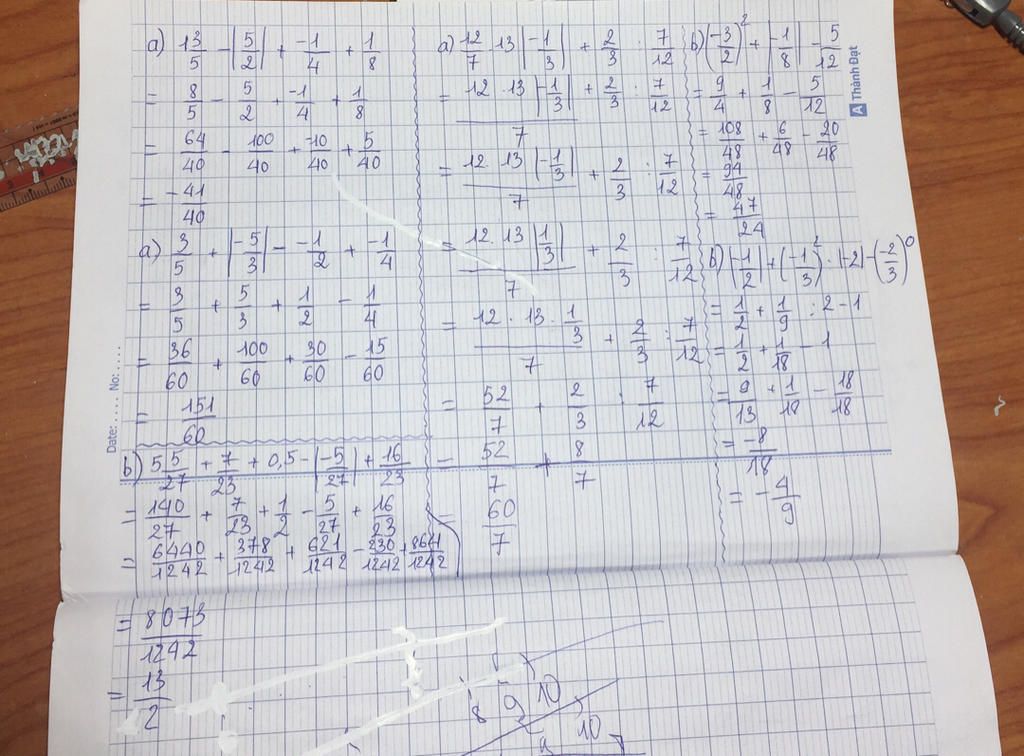 a) 13/5 - |5/2| + -1/4 + 1/8
= 8/5 - 5/2 + -1/4 + 1/8
= 64/40 - 100/40 + -10/40 + 5/40
= -41/40
a) 3/5 + |-5/3| - -1/2 + -1/4
= 3/5 + 5/3 + 1/2 - 1/4
= 36/60 + 100/60 + 30/60 - 15/60
= 151/60
b) 5 5/27 + 7/23 + 0,5 - |-5/27| + 16/23
= 140/27 + 7/23 + 1/2 - 5/27 + 16/23
= 6440/1242 + 378/1242 + 621/1242 - 230/1242 + 864/1242
= 8073/1242
= 13/2
a) 12/7 · 13 |-1/3| + 2/3 : 7/12
= 12 · 13 |-1/3| / 7 + 2/3 : 7/12
= 12 · 13 |-1/3| / 7 + 2/3 : 7/12
= 12 . 13 |1/3| / 7 + 2/3 : 7/12
= 12 · 13 · 1/3 / 7 + 2/3 : 7/12
= 52/7 + 2/3 : 7/12
= 52/7 + 8/7
= 60/7
b) (-3/2)² + |-1/8| - 5/12
= 9/4 + 1/8 - 5/12
= 108/48 + 6/48 - 20/48
= 94/48
= 47/24
b) |-1/2| + (-1/3)² : |-2| - (-2/3)⁰
= 1/2 + 1/9 : 2 - 1
= 1/2 + 1/18 - 1
= 9/13 + 1/18 - 18/18
= -8/18
= -4/9
A Thành Đạt
Date: ..... No: ....
8 9 10
9 10